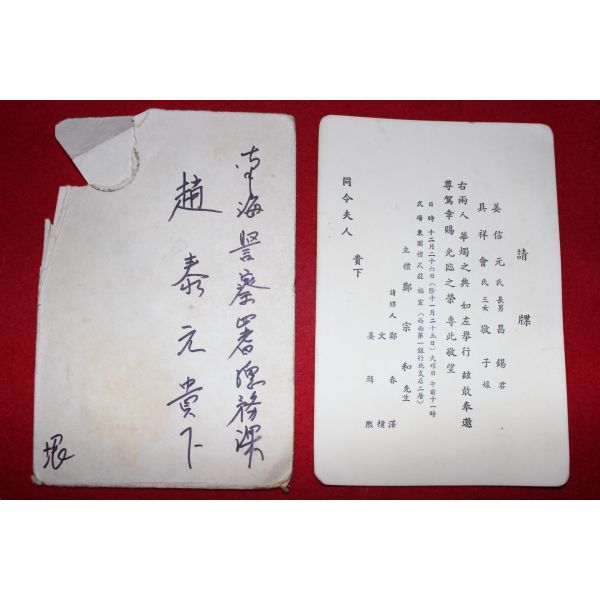 南海警察署 務課
趙泰元貴下
請牒
姜信元氏長男 昌錫君
具祥會氏三女 敬子孃
右兩人 華燭之典 如左擧行 玆敢奉邀
尊駕幸賜 光臨之榮 專此敬望
日時 十二月二十六日(陰十一月二十五日)火曜日 午前十一時
式場 東園禮式莊 福室(西面第一銀行北支店二層)
主禮 鄭宗和先生
請牒人 鄭春澤
文 樸
姜 熙
同令夫人 貴下